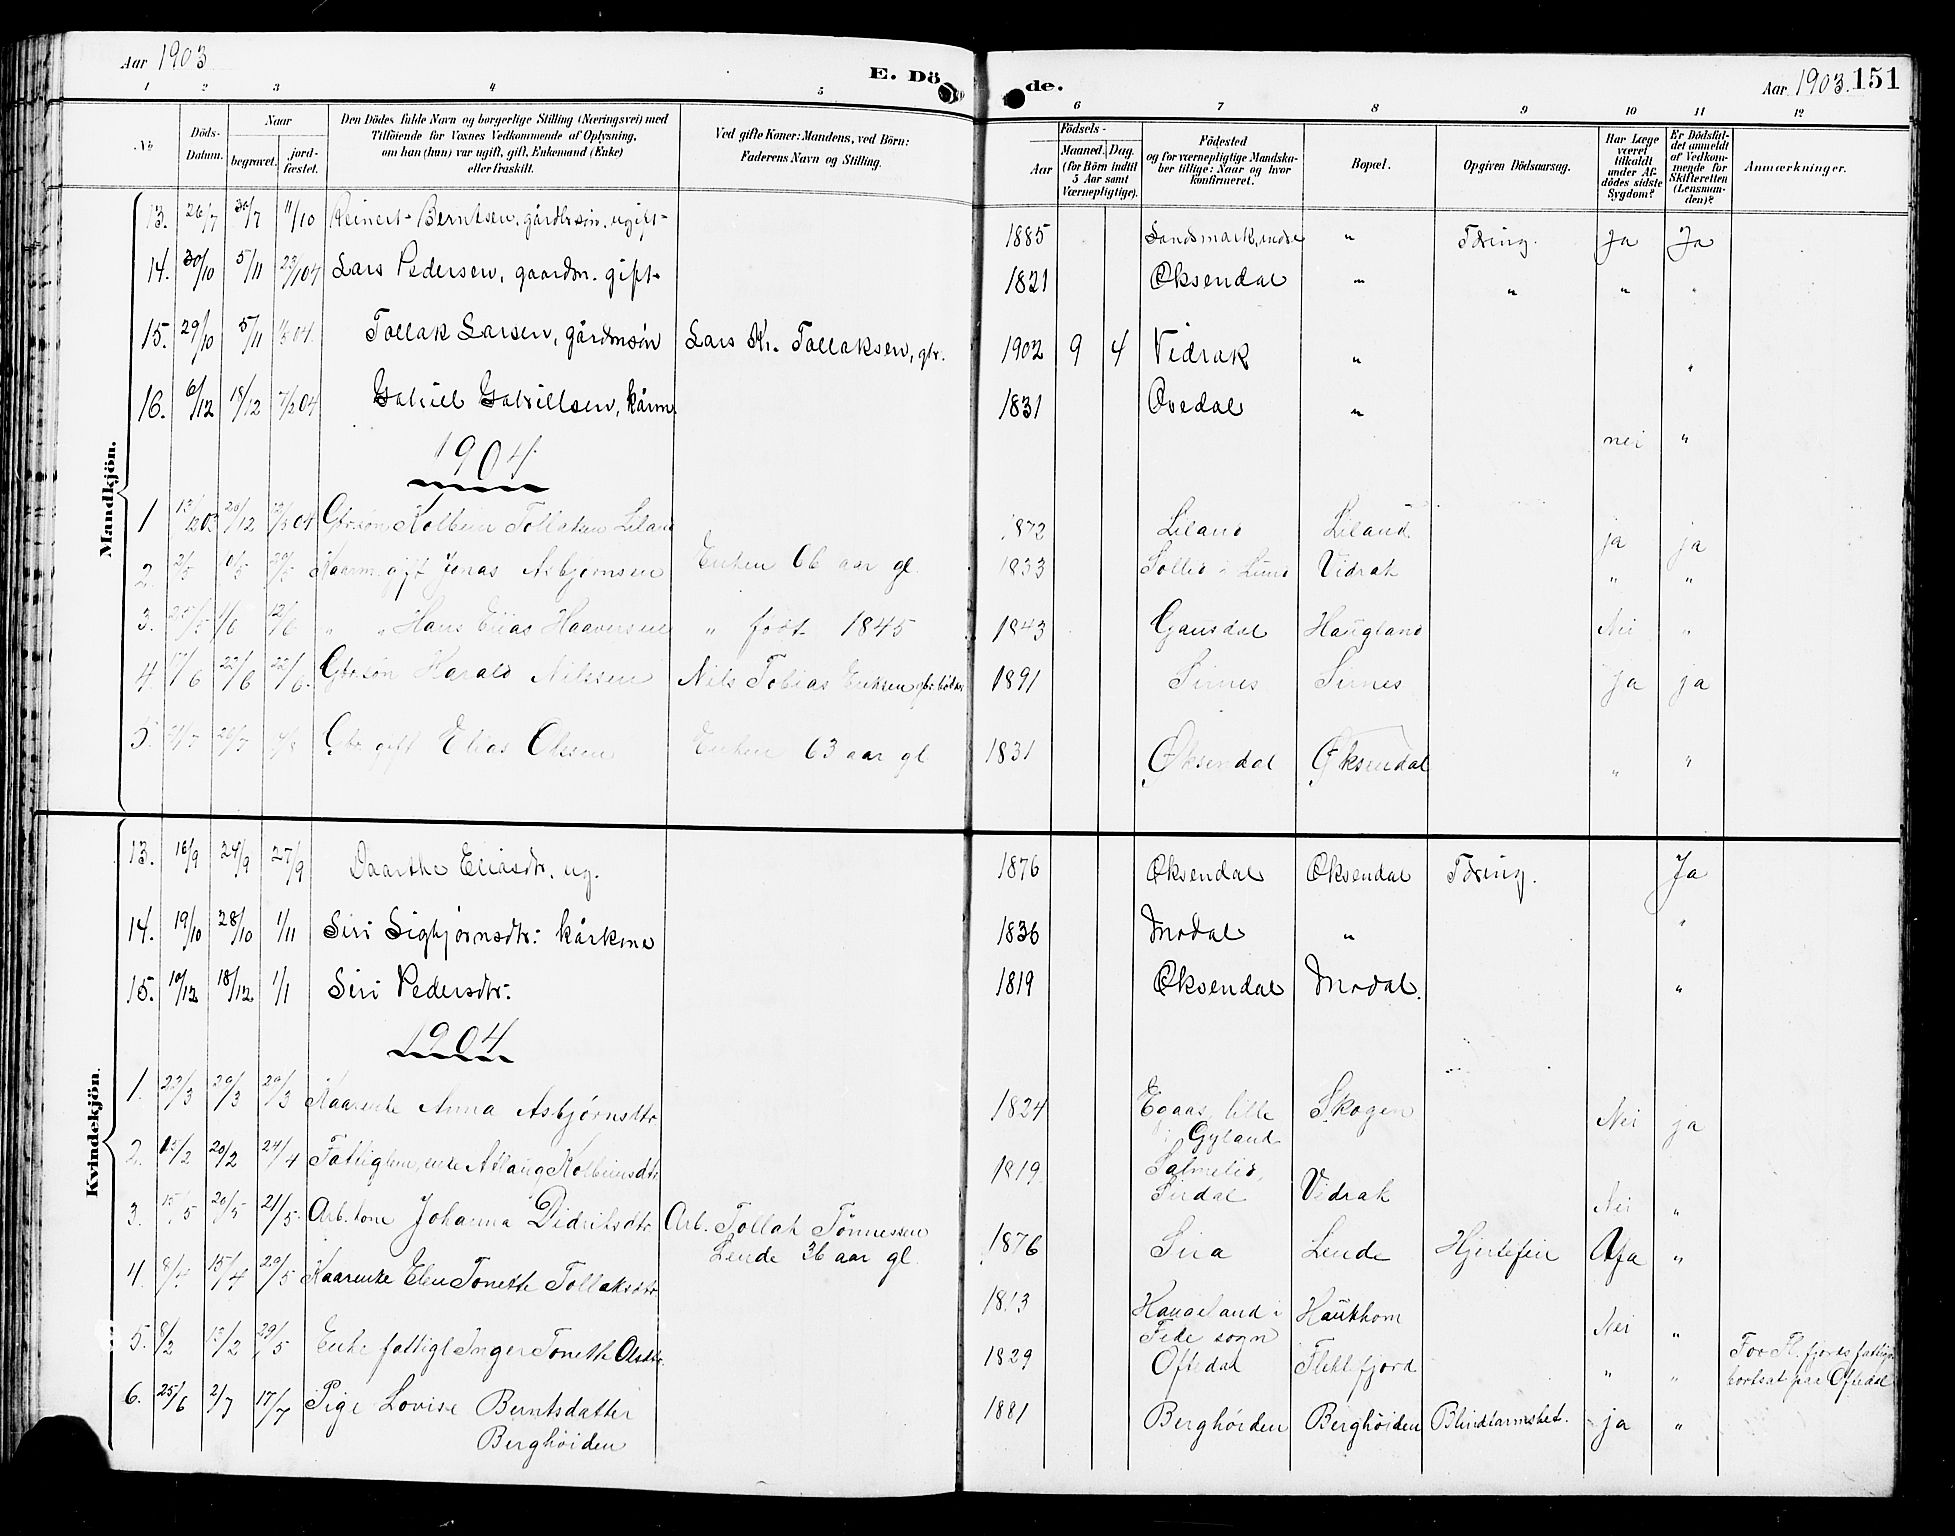 Aar 1903
E. Döde.
Aar 1903. 151
1 2 3 4 5 6 7 8 9 10 11 12
No.
Döds-Datum.
Naar
begravet.
jord-fæstet.
Den Dödes fulde Navn og borgerlige Stilling (Næringsvei) med
Tilföiende for Voxnes Vedkommende af Oplysning,
om han (hun) var ugift, gift, Enkemand (Enke)
eller fraskilt.
Ved gifte Koner: Mandens, ved Börn:
Faderens Navn og Stilling.
Födsels-
Aar
Maaned. Dag.
(for Börn indtil
5 Aar samt
Værnepligtige).
Födested
og for værnepligtige Mandska-
ber tillige: Naar og hvor
konfirmeret.
Bopæl.
Opgiven Dödsaarsag.
Har Læge
været
tilkaldt
under Af-
dödes sidste
Sygdom?
Er Dödsfal-
det anmeldt
af Vedkom-
mende for
Skifteretten
(Lensman-
den)?
Anmærkninger.
Mandkjön.
13. 26/7 30/7 11/10 Reinert Berntsen, gårdbrsøn, ugift 1885 Landsmark, " Tæring. Ja Ja
14. 30/10 5/11 23/1 04 Lars Pedersen, gaardm. gift 1821 Øksendal " " " "
15. 29/10 5/11 04. Tollak Larsen, gårdmsøn Lars Kr. Tollaksen, gbr. 1902 9 4 Vidrak " "
16. 6/12 18/12 7/2 04 Gabriel Gabrillsen, kårm. 1831 Ovedal " nei "
1904.
1 13/12 03 20/12 04 Gbrsøn Kolbein Tollaksen Liland 1872 Liland Liland. ja ja
2. 2/5 /5 20/5 Kaarm. gift Jonas Asbjørnsen Enken 66 aar gl. 1833 Sollid i Lund Vidrak " "
3. 25/5 1/6 12/6 " " Hans Elias Haaversen " født 1845 1843 Gausdal Haugland Nei "
4. 17/6 22/6 22/6. Gbrsøn Harald Nilssen Nils Tobias Eriksen 1891 Sirnes Sirnes ja ja
5. /7 /7 /8 Gbr. gift Elias Olssen Enken 63 aar gl 1831 Øksendal Øksendal " "
Kvindekjön.
13. 16/9 24/9 27/9 Daarthe Eliasdtr, ug. 1876 Øksendal Øksendal Tæring. Ja
14. 19/10 28/10 1/11 Siri Sigbjørnsdtr: kårkone 1836 Modal " "
15. 10/12 18/12 1/1 Siri Pedersdtr. 1819 Øksendal Modal. "
1904
1. 23/3 29/3 20/3 Kaarenke Anna Asbjørnsdtr 1824 Egaas, lille Skogen Nei ja
i Gyland
2. 15/2 20/2 24/4 Fattiglem, enke Aslaug Kolbeinsdtr 1819. Salmelid, Vidrak Nei "
Sirdal
3. 15/5 20/5 21/5. Arb. kone Johanna Didriksdtr Arb. Tollak Tönnessen 1876 Sira Lende Hjertefeil Ja "
Lende 36 aar gl.
4. 8/4 15/4 29/5 Kaarenke Elen Tonette Tollaksdtr 1813 Haugeland i Haukhom Nei "
Fede sogn
5. 8/2 13/2 29/5 Enke fattigl Inger Tonette Olsdtr 1829 Oftedal Flekkefjord " " For Fl. fjords fattigv.
bortsat paa Oftedal
6. 25/6 2/7 17/7 Pige Lovise Berntsdatter 1881 Berghöiden Berghöiden Blindtarmsbet. ja "
Berghöiden